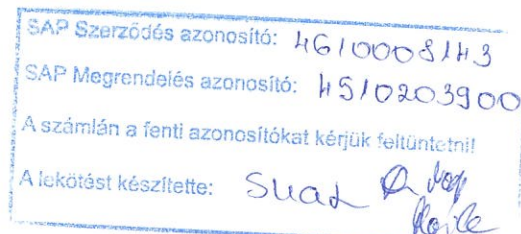 SAP Szerződés azonosító: 4610008143
SAP Megrendelés azonosító: 4510203900
A számlán a fenti azonosítókat kérjük feltüntetni!
A lekötést készítette: